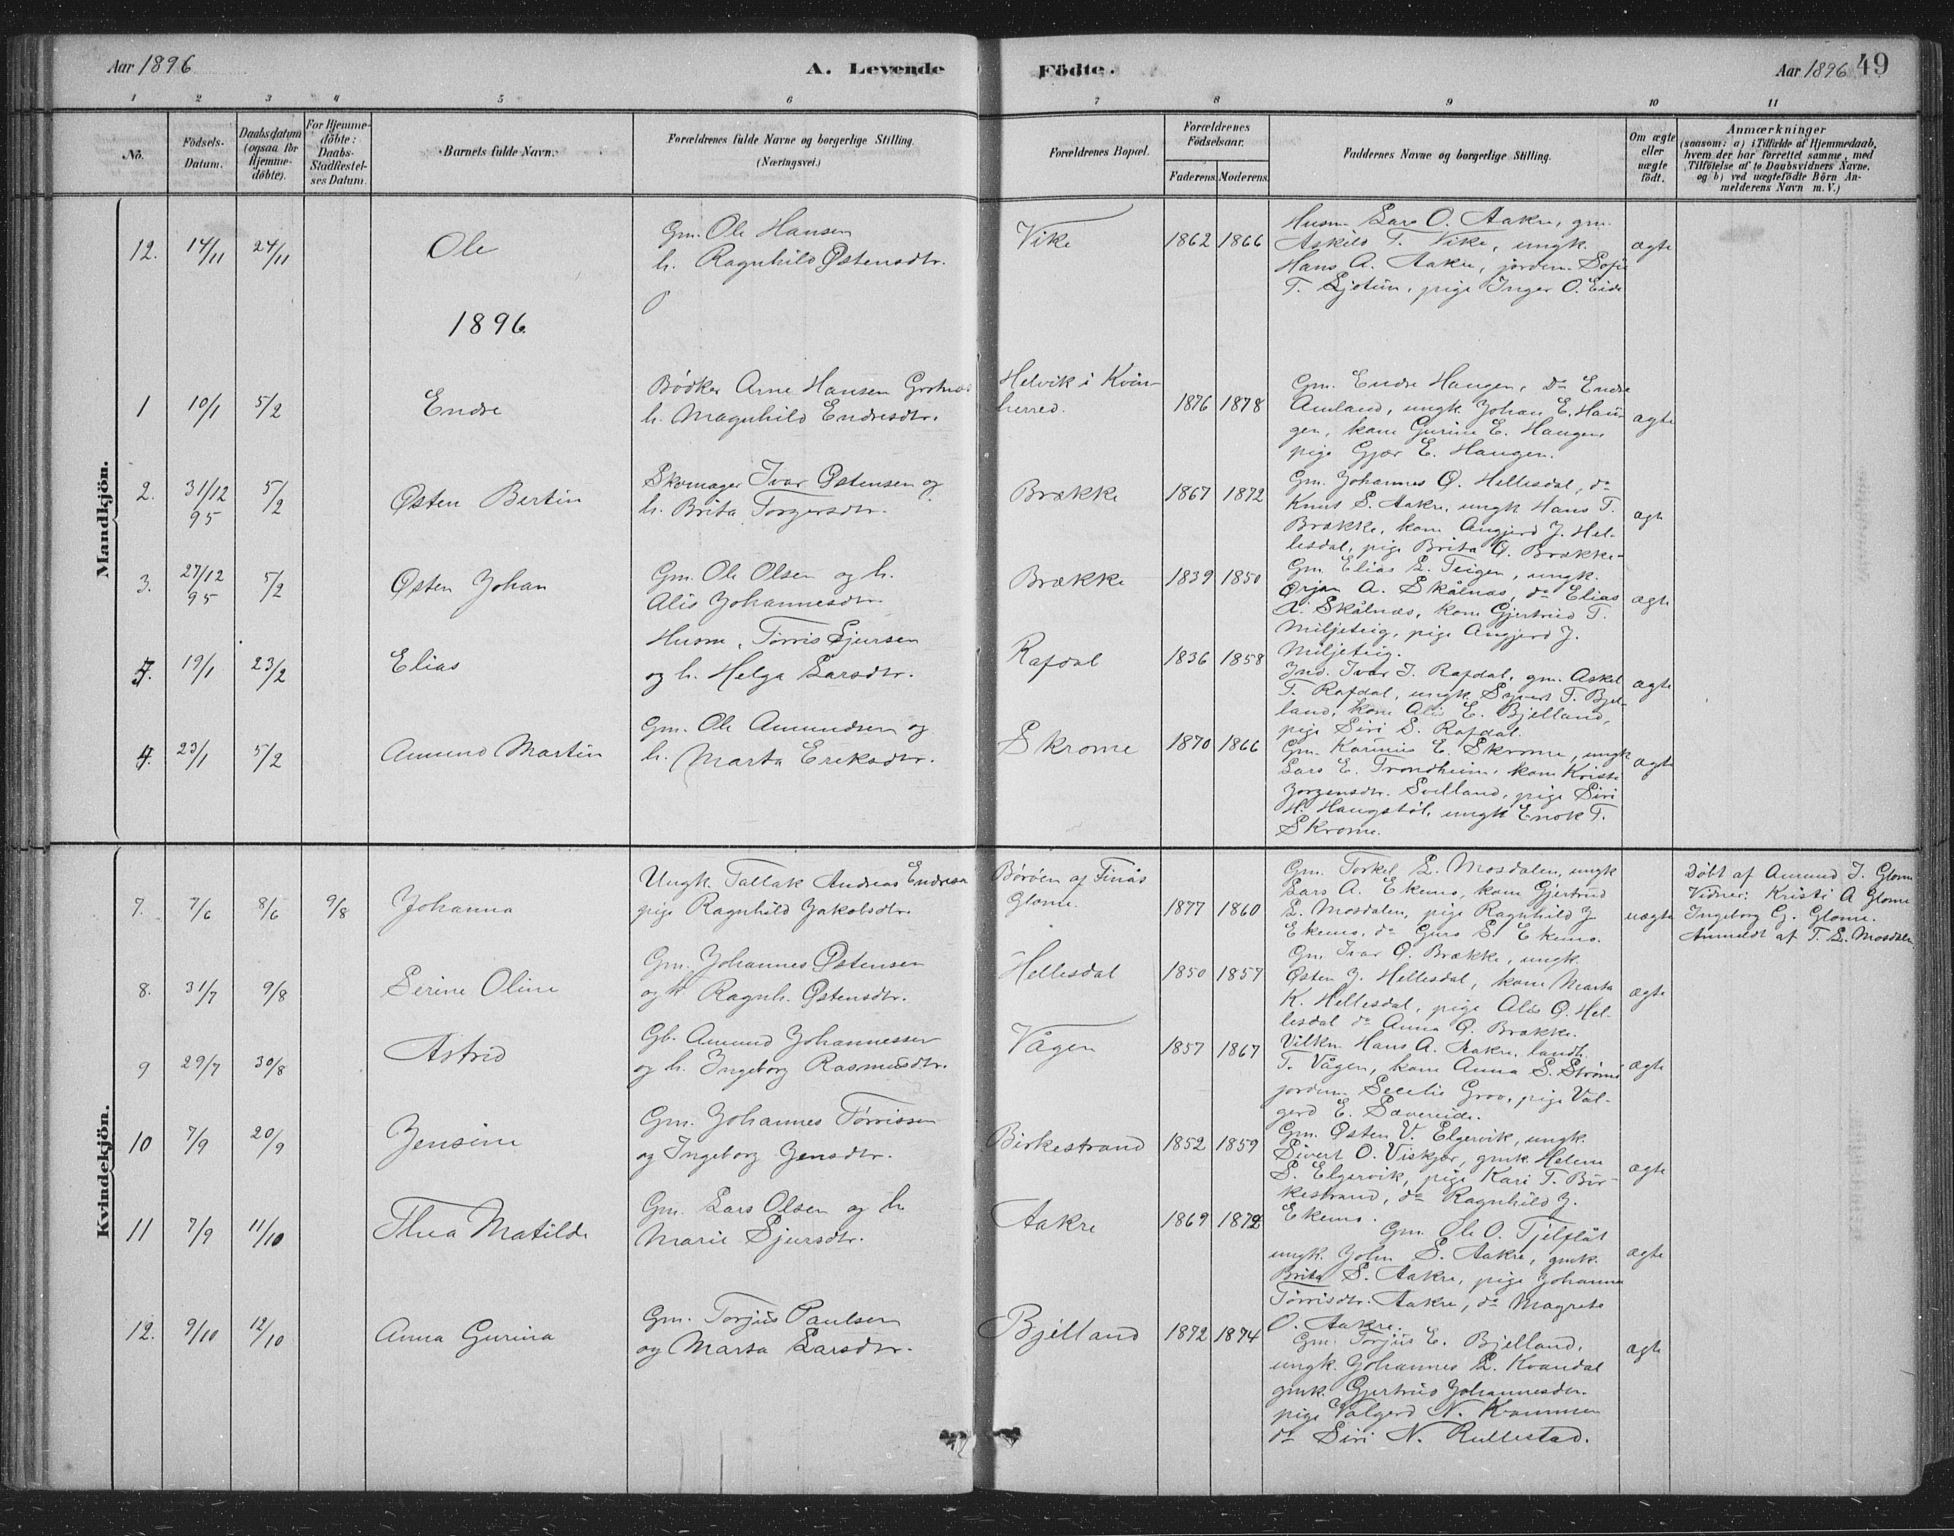 Aar 1896
A. Levende
Födte.
Aar 1896
49
1 2 3 4 5 6 7 8 9 10 11
No.
Födsels-
Datum.
Daabsdatum
(ogsaa for
Hjemme-
döbte).
For Hjemme-
döbte:
Daabs-
Stadfæstel-
ses Datum.
Barnets fulde Navn.
Forældrenes fulde Navne og borgerlige Stilling.
(Næringsvei.)
Forældrenes Bopæl.
Forældrenes
Födselsaar.
Faderens. Moderens.
Faddernes Navne og borgerlige Stilling.
Om ægte
eller
uægte
födt.
Anmærkninger
(saasom: a) i Tilfælde af Hjemmedaab,
hvem der har forrettet samme, med
Tilföielse af to Daabsvidners Navne,
og b) ved uægtefödte Börn An-
melderens Navn m. V.)
Mandkjön.
12. 14/11 24/11 Ole
Gm. Ole Hansen
h. Ragnhild Østensdtr.
Vike 1862 1866
Husm. Lars O. Aakre, gm.
Askild T. Vike, ungk.
Hans A. Aakre, jordm. Sofie
T. Sjotun, pige Inger O. Eide
ægte
1896
1 10/1 5/2 Endre
Bödker Arne Hansen
h. Magnhild Endresdtr.
Helvik i Kvin-
herred. 1876 1878
Gm. Endre Haugen, do Endre
Amland, ungk. Johan E. Hau-
gen, kone Gurine E. Haugen,
pige Gjør E. Haugen.
ægte
2. 31/12 95 5/2 Østen Bertin
Skomager Ivar Østensen og
h. Brita Torgersdtr.
Brække 1867 1872
Gm. Johannes Ø. Hellesdal, do
Knut S. Aakre, ungk Hans T.
Brække, kone Angjerd J. Hel-
lesdal, pige Brita Ø. Brække
ægt
3. 27/12 95 5/2 Østen Johan
Gm. Ole Olsen og h.
Alis Johannesdtr.
Brække 1839 1850
Gm. Elias L. Teigen, ungk.
Ørjan A. Skålnæs, do Elias
A. Skålnæs, kone Gjertrud T.
Miljeteig, pige Angjerd J.
Miljeteig.
ægte
5. 19/1 23/2 Elias
Husm. Tørris Sjursen
og h. Helga Larsdtr.
Rafdal 1836 1858
Ind. Ivar I. Rafdal, gm. Askel
T. Rafdal, ungk Sjovert T. Bjel-
land, kone Alis E. Bjelland,
pige Siri S. Rafdal.
ægte
4. 23/1 5/2 Amund Martin
Gm. Ole Amundsen og
h. Marta Eriksdtr.
Skrome 1870 1866
Gm. Karinius E. Skrome, ungk
Lars E. Trondheim, kone Kristi
Jorgensdtr. Svelland, pige Siri
H. Haugstøl, ungk Enok T.
Skrome.
ægte
Kvindekjön.
7. 7/6 8/6 9/8 Johanna
Ungk. Tallak Andreas Endresen
pige Ragnhild Jakobsdtr.
Börøen af Finås
Glome. 1877 1860
Gm. Torkel L. Mosdalen, ungk
Lars A. Ekemo, kone Gjertrud
L. Mosdalen, pige Ragnhild J.
Ekemo, do Guro S. Ekemo.
uægte
Døbt af Amund J. Glome
Vidner: Kristi A Glome
Ingeborg G. Glome.
Anmeldt af T. L. Mosdalen
8. 31/7 9/8 Serine Oline
Gm. Johannes Østensen
og h. Ragnh. Østensdtr.
Hellesdal 1850 1857
Gm. Ivar Ø. Brække, ungk.
Østen J. Hellesdal, kone Marta
K. Hellesdal, pige Alis Ø. Hel-
lesdal do Anna Ø. Brække.
ægte
9 29/7 30/8 Astrid
Gb. Amund Johannessen
og h. Ingeborg Rasmusdtr.
Vågen 1857 1867
Vilkm. Hans A. Aakre, landh.
T. Vågen, kone Anna S. Strømø
jordm. Secelie Grov, pige Val-
gerd E. Sævereide.
ægte
10 7/9 20/9 Jensine
Gm. Johannes Tørrissen
og Ingeborg Jensdtr.
Birkestrand 1852 1859
Gm. Østen V. Elgervik, ungk.
Sivert O. Viskjær, gmk. Helene
S. Elgervik, pige Kari T. Bir-
kestrand, do Ragnhild J.
Ekemo.
ægte
11 7/9 11/10 Thea Matilde
Gm. Lars Olsen og h.
Marie Sjursdtr.
Aakre 1869 1872
Gm. Ole O. Tjelflåt
ungk. John S. Aakre, gmk.
Brita S. Aakre, pige Johanna
Tørrisdtr. Aakre, do Magrete
O. Aakre.
ægte
12. 9/10 12/10 Anna Gurina
Gm. Torjus Paulsen
og Marta Larsdtr.
Bjelland 1872 1874
Gm. Torjus E. Bjelland,
ungk. Johannes L. Kvandal
gmk. Gjertrud Johannesdtr.
pige Valgerd N. Kvammen
do Siri N. Rullestad.
ægte